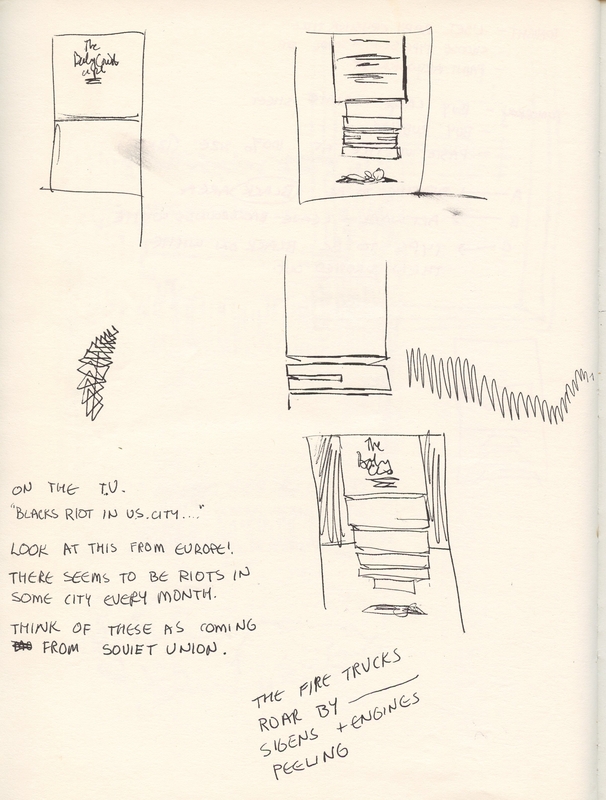 The
Daily
The
ON THE T.V.
"BLACKS RIOT IN US. CITY...."
LOOK AT THIS FROM EUROPE!
THERE SEEMS TO BE RIOTS IN
SOME CITY EVERY MONTH.
THINK OF THESE AS COMING
FROM SOVIET UNION.
THE FIRE TRUCKS
ROAR BY
SIGENS + ENGINES
PEELING